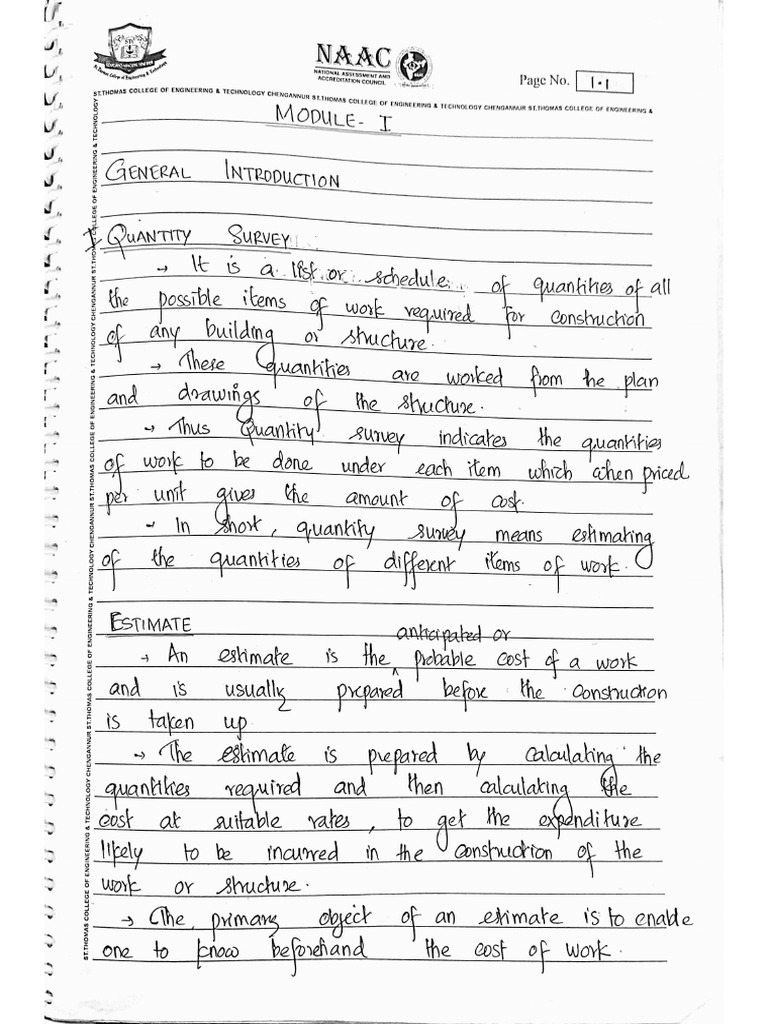 NAAC
NATIONAL ASSESSMENT AND
ACCREDITATION COUNCIL
St. Thomas College of Engineering & Technology
Page No. 1.1
ST.THOMAS COLLEGE OF ENGINEERING & TECHNOLOGY CHENGANNUR ST.THOMAS COLLEGE OF ENGINEERING & TECHNOLOGY CHENGANNUR ST.THOMAS COLLEGE OF ENGINEERING &
MODULE - I
GENERAL INTRODUCTION
I QUANTITY SURVEY
→ It is a list or schedule of quantities of all
the possible items of work required for construction
of any building or structure.
→ These quantities are worked from the plan
and drawings of the structure.
→ Thus Quantity survey indicates the quantities
of work to be done under each item which when priced
per unit gives the amount of cost.
→ In short, quantity survey means estimating
of the quantities of different items of work.
ESTIMATE
anticipated or
→ An estimate is the ^ probable cost of a work
and is usually prepared before the construction
is taken up
→ The estimate is prepared by calculating the
quantities required and then calculating the
cost at suitable rates, to get the expenditure
likely to be incurred in the construction of the
work or structure.
→ The primary object of an estimate is to enable
one to know beforehand the cost of work.
ST.THOMAS COLLEGE OF ENGINEERING & TECHNOLOGY CHENGANNUR ST.THOMAS COLLEGE OF ENGINEERING & TECHNOLOGY CHENGANNUR ST.THOMAS COLLEGE OF ENGINEERING & TECHNOLOGY